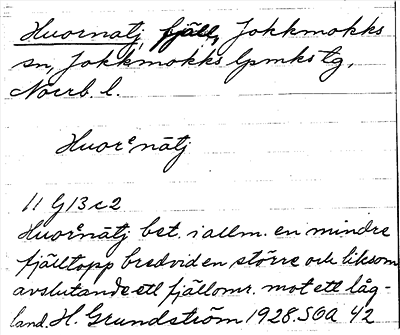 Huornatj, fjäll, Jokkmokks
sn, Jokkmokks lpmks tg,
Norrb. l.
Huorᵉnātj
11 G 13 c 2
Huorᵉnātj bet. i allm. en mindre
fjälltopp bredvid en större och liksom
avslutande ett fjällomr. mot ett låg-
land. H. Grundström 1928. SOA 42